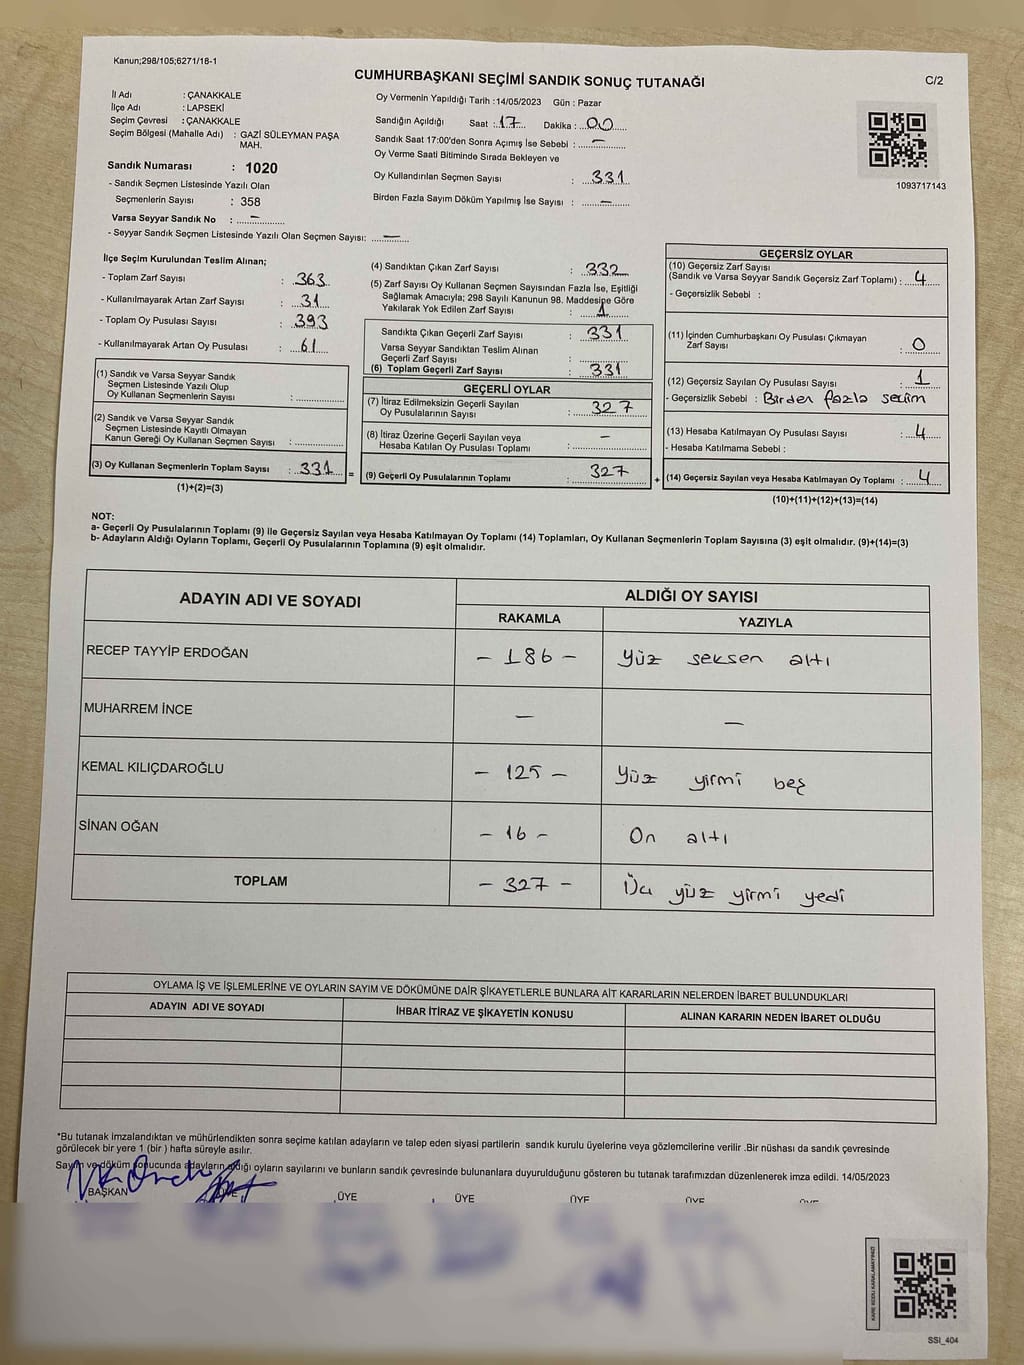 Kanun;298/105;6271/18-1
CUMHURBAŞKANI SEÇİMİ SANDIK SONUÇ TUTANAĞI
C/2
İl Adı : ÇANAKKALE
İlçe Adı : LAPSEKİ
Seçim Çevresi : ÇANAKKALE
Seçim Bölgesi (Mahalle Adı) : GAZİ SÜLEYMAN PAŞA
MAH.
Sandık Numarası : 1020
- Sandık Seçmen Listesinde Yazılı Olan
Seçmenlerin Sayısı : 358
Varsa Seyyar Sandık No : —
- Seyyar Sandık Seçmen Listesinde Yazılı Olan Seçmen Sayısı: —
Oy Vermenin Yapıldığı Tarih :14/05/2023 Gün : Pazar
Sandığın Açıldığı Saat : 17 Dakika : 00
Sandık Saat 17:00'den Sonra Açımış İse Sebebi : —
Oy Verme Saati Bitiminde Sırada Bekleyen ve
Oy Kullandırılan Seçmen Sayısı : 331
Birden Fazla Sayım Döküm Yapılmış İse Sayısı : —
1093717143
İlçe Seçim Kurulundan Teslim Alınan;
- Toplam Zarf Sayısı : 363
- Kullanılmayarak Artan Zarf Sayısı : 31
- Toplam Oy Pusulası Sayısı : 393
- Kullanılmayarak Artan Oy Pusulası : 61
(1) Sandık ve Varsa Seyyar Sandık
Seçmen Listesinde Yazılı Olup
Oy Kullanan Seçmenlerin Sayısı :
(2) Sandık ve Varsa Seyyar Sandık
Seçmen Listesinde Kayıtlı Olmayan
Kanun Gereği Oy Kullanan Seçmen Sayısı :
(3) Oy Kullanan Seçmenlerin Toplam Sayısı : 331 =
(1)+(2)=(3)
(4) Sandıktan Çıkan Zarf Sayısı : 332
(5) Zarf Sayısı Oy Kullanan Seçmen Sayısından Fazla İse, Eşitliği
Sağlamak Amacıyla; 298 Sayılı Kanunun 98. Maddesine Göre
Yakılarak Yok Edilen Zarf Sayısı : 1
Sandıkta Çıkan Geçerli Zarf Sayısı : 331
Varsa Seyyar Sandıktan Teslim Alınan
Geçerli Zarf Sayısı :
(6) Toplam Geçerli Zarf Sayısı : 331
GEÇERLİ OYLAR
(7) İtiraz Edilmeksizin Geçerli Sayılan
Oy Pusulalarının Sayısı : 327
(8) İtiraz Üzerine Geçerli Sayılan veya
Hesaba Katılan Oy Pusulası Toplamı : —
(9) Geçerli Oy Pusulalarının Toplamı : 327 +
GEÇERSİZ OYLAR
(10) Geçersiz Zarf Sayısı
(Sandık ve Varsa Seyyar Sandık Geçersiz Zarf Toplamı) : 4
- Geçersizlik Sebebi :
(11) İçinden Cumhurbaşkanı Oy Pusulası Çıkmayan
Zarf Sayısı : 0
(12) Geçersiz Sayılan Oy Pusulası Sayısı : 1
- Geçersizlik Sebebi : Birden fazla seçim
(13) Hesaba Katılmayan Oy Pusulası Sayısı : 4
- Hesaba Katılmama Sebebi :
(14) Geçersiz Sayılan veya Hesaba Katılmayan Oy Toplamı : 4
(10)+(11)+(12)+(13)=(14)
NOT:
a- Geçerli Oy Pusulalarının Toplamı (9) ile Geçersiz Sayılan veya Hesaba Katılmayan Oy Toplamı (14) Toplamları, Oy Kullanan Seçmenlerin Toplam Sayısına (3) eşit olmalıdır. (9)+(14)=(3)
b- Adayların Aldığı Oyların Toplamı, Geçerli Oy Pusulalarının Toplamına (9) eşit olmalıdır.
ADAYIN ADI VE SOYADI
ALDIĞI OY SAYISI
RAKAMLA YAZIYLA
RECEP TAYYİP ERDOĞAN - 186 - Yüz seksen altı
MUHARREM İNCE — —
KEMAL KILIÇDAROĞLU - 125 - Yüz yirmi beş
SİNAN OĞAN - 16 - On altı
TOPLAM - 327 - Üç yüz yirmi yedi
OYLAMA İŞ VE İŞLEMLERİNE VE OYLARIN SAYIM VE DÖKÜMÜNE DAİR ŞİKAYETLERLE BUNLARA AİT KARARLARIN NELERDEN İBARET BULUNDUKLARI
ADAYIN ADI VE SOYADI İHBAR İTİRAZ VE ŞİKAYETİN KONUSU ALINAN KARARIN NEDEN İBARET OLDUĞU
*Bu tutanak imzalandıktan ve mühürlendikten sonra seçime katılan adayların ve talep eden siyasi partilerin sandık kurulu üyelerine veya gözlemcilerine verilir .Bir nüshası da sandık çevresinde
görülecek bir yere 1 (bir ) hafta süreyle asılır.
Sayım ve döküm sonucunda adayların aldığı oyların sayılarını ve bunların sandık çevresinde bulunanlara duyurulduğunu gösteren bu tutanak tarafımızdan düzenlenerek imza edildi. 14/05/2023
BAŞKAN ÜYE ÜYE ÜYE ÜYE ÜYE ÜYE
KARE KODU KARALAMAYINIZ!
SSI_404